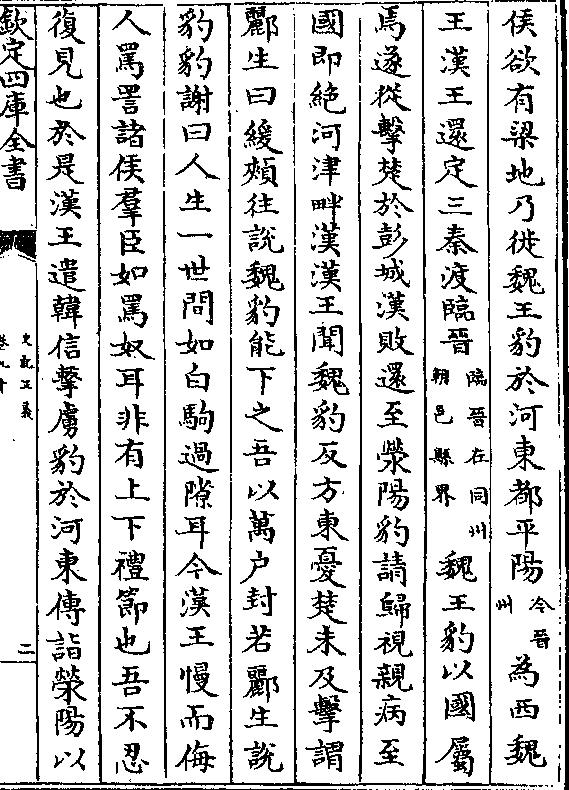 侯欲有梁地乃徙魏王豹於河東都平陽今晉州為西魏
王漢王還定三秦渡臨晉臨晉在同州朝邑縣界魏王豹以國屬
馬遂從擊楚於彭城漢敗還至滎陽豹請歸視親病至
國即絶河津畔漢漢王聞魏豹反方東憂楚未及擊謂
酈生曰緩頰往說魏豹能下之吾以萬户封若酈生說
豹豹謝曰人生一世間如白駒過隙耳今漢王慢而侮
人罵詈諸侯羣臣如罵奴耳非有上下禮節也吾不忍
復見也於是漢王遣韓信擊虜豹於河東傳詣滎陽以
欽定四庫全書
史記正義
卷九十
二